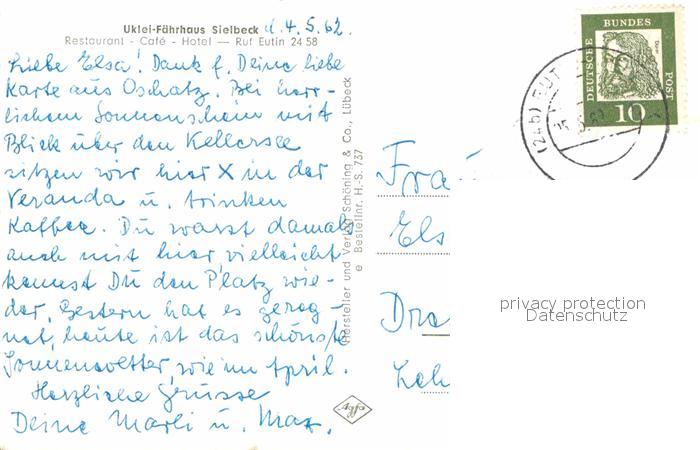 Uklei-Fährhaus Sielbeck d. 4.5.62.
Restaurant - Café - Hotel — Ruf Eutin 24 58
Liebe Elsa! Dank f. Deine liebe
Karte aus Oschatz. Bei herr-
lichem Sonnenschein mit
Blick über den Kellersee
sitzen wir hier X in der
Veranda u. trinken
Kaffee. Du warst damals
auch mit hier, vielleicht
kennst Du den Platz wie-
der. Gestern hat es gereg-
net, heute ist das schönste
Sonnenwetter, wie im April.
Herzliche Grüsse
Deine Marli u. Max.
Hersteller und Verlag Schöning & Co., Lübeck
Bestellnr. H.-S. 737
Agfa
DEUTSCHE BUNDES POST
10
(24b) EUT
Fra
Els
Dre
Leh
privacy protection
Datenschutz